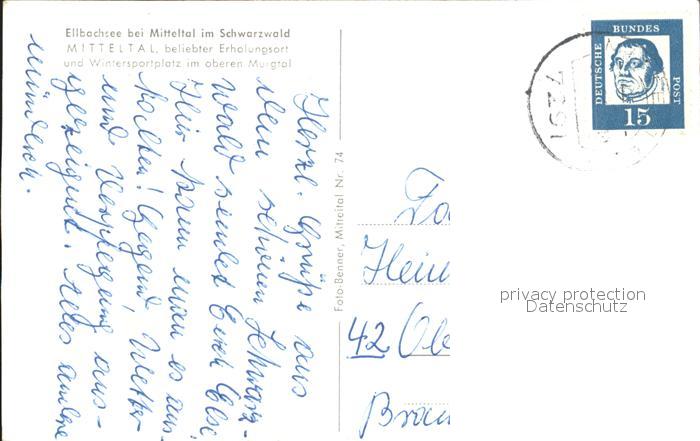 Ellbachsee bei Mitteltal im Schwarzwald
MITTELTAL, beliebter Erholungsort
und Wintersportplatz im oberen Murgtal
Herzl. Grüße aus
dem schönen Schwarz-
wald sendet Euch Elsi.
Hier kann man es aus-
halten! Gegend, Wetter
und Verpflegung aus-
gezeichnet. Alles andere
mündlich.
Foto-Benner, Mitteltal Nr. 74
DEUTSCHE BUNDES POST
15
7291
Fa
Hein
42 Obe
Brau
privacy protection
Datenschutz